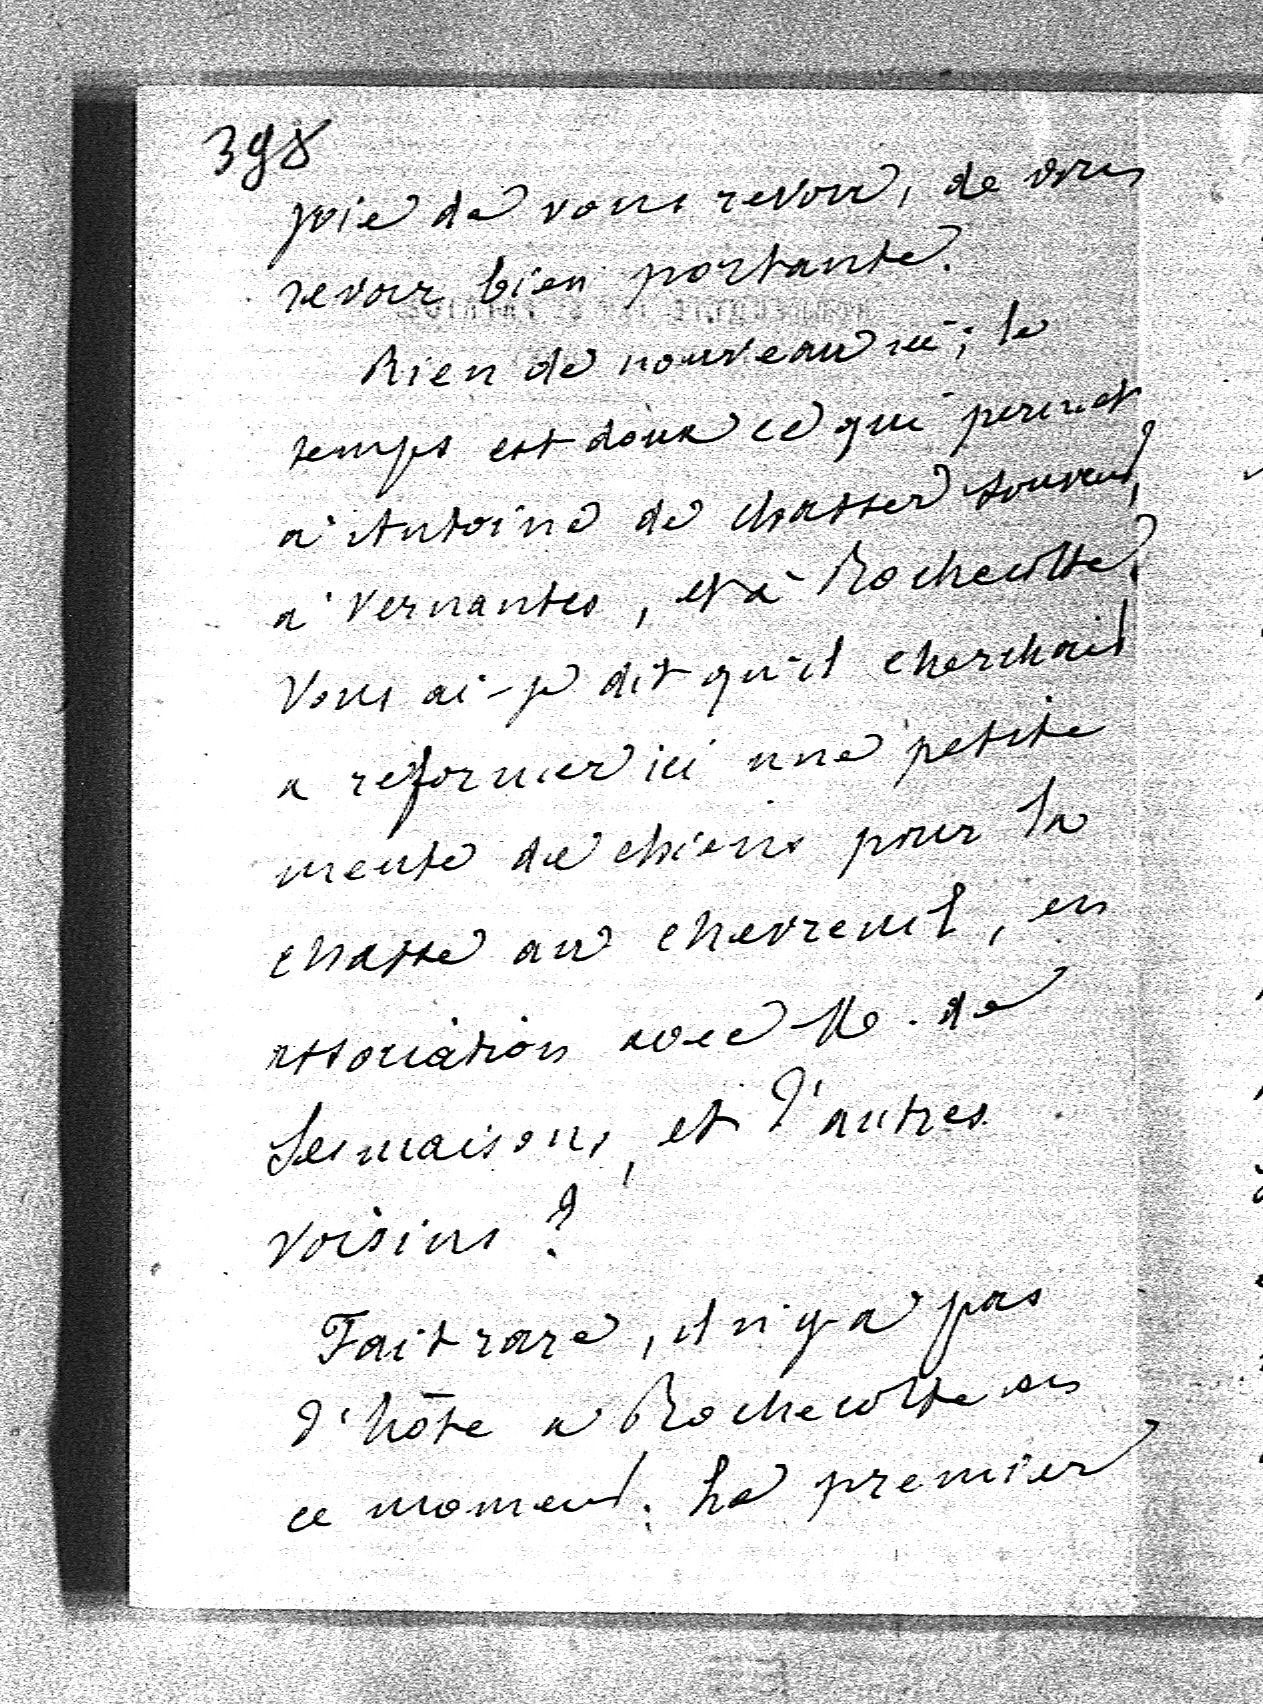 398
joie de vous revoir, de vous
revoir bien portante.
Rien de nouveau ici ; le
temps est doux ce qui permet
a' Antoine de chasser souvent,
a' Vernantes, et à Rochecotte.
Vous ai-je dit qu'il cherchait
a reformer ici une petite
meute de chiens pour la
chasse au chevreuil, en
association avec M. de
Sesmaisons, et d'autres
voisins ?
Fait rare, il n'y a pas
d'hôte a Rochecotte en
ce moment. Le premier